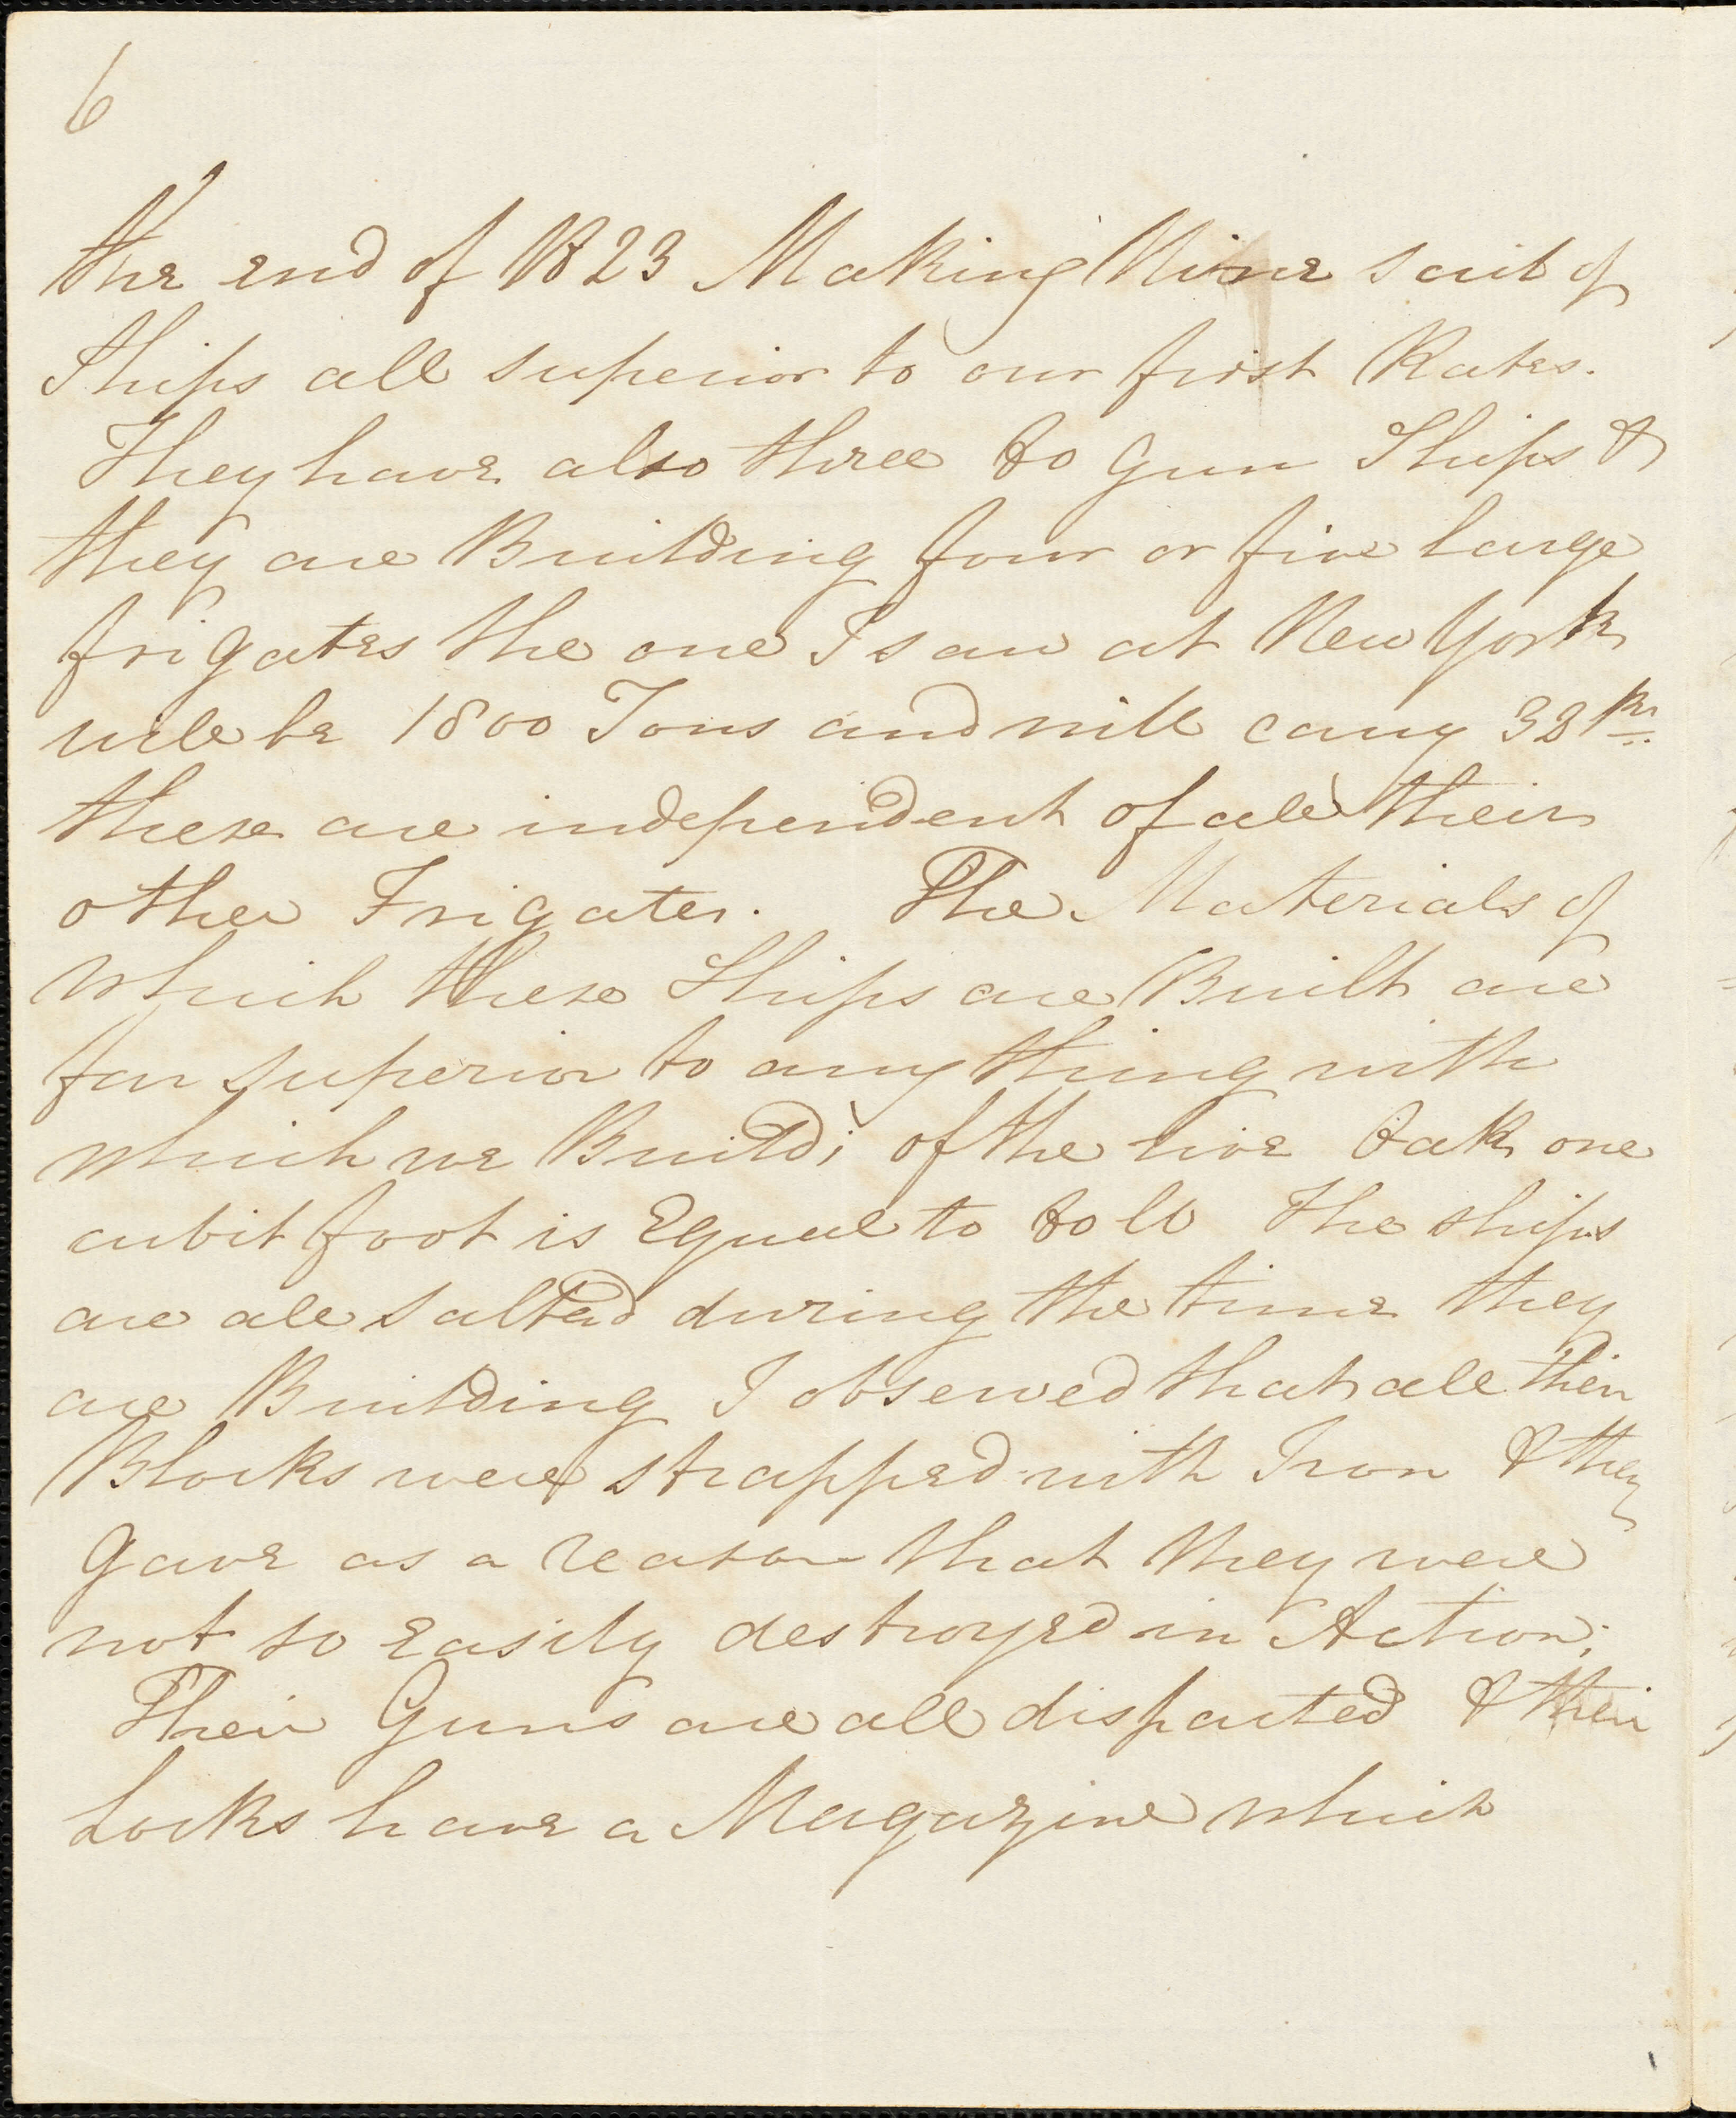 6
the end of 1823 Making Nine sail of
Ships all superior to our first Rates.
They have also three 80 gun Ships &
they are Building four or five large
frigates the one I saw at New York
will be 1800 Tons and will carry 32 Prs
these are independent of all their
other Frigates. The Materials of
which these Ships are Built are
far superior to any thing with
which we Build; of the live Oak one
cubit foot is Equal to 80 lb The ships
are all salted during the time they
are Building I observed that all their
Blocks were strapped with Iron & they
gave as a reason that they were
not so easily destroyed in Action;
Their Guns are all disparted & their
Locks have a Magazine which